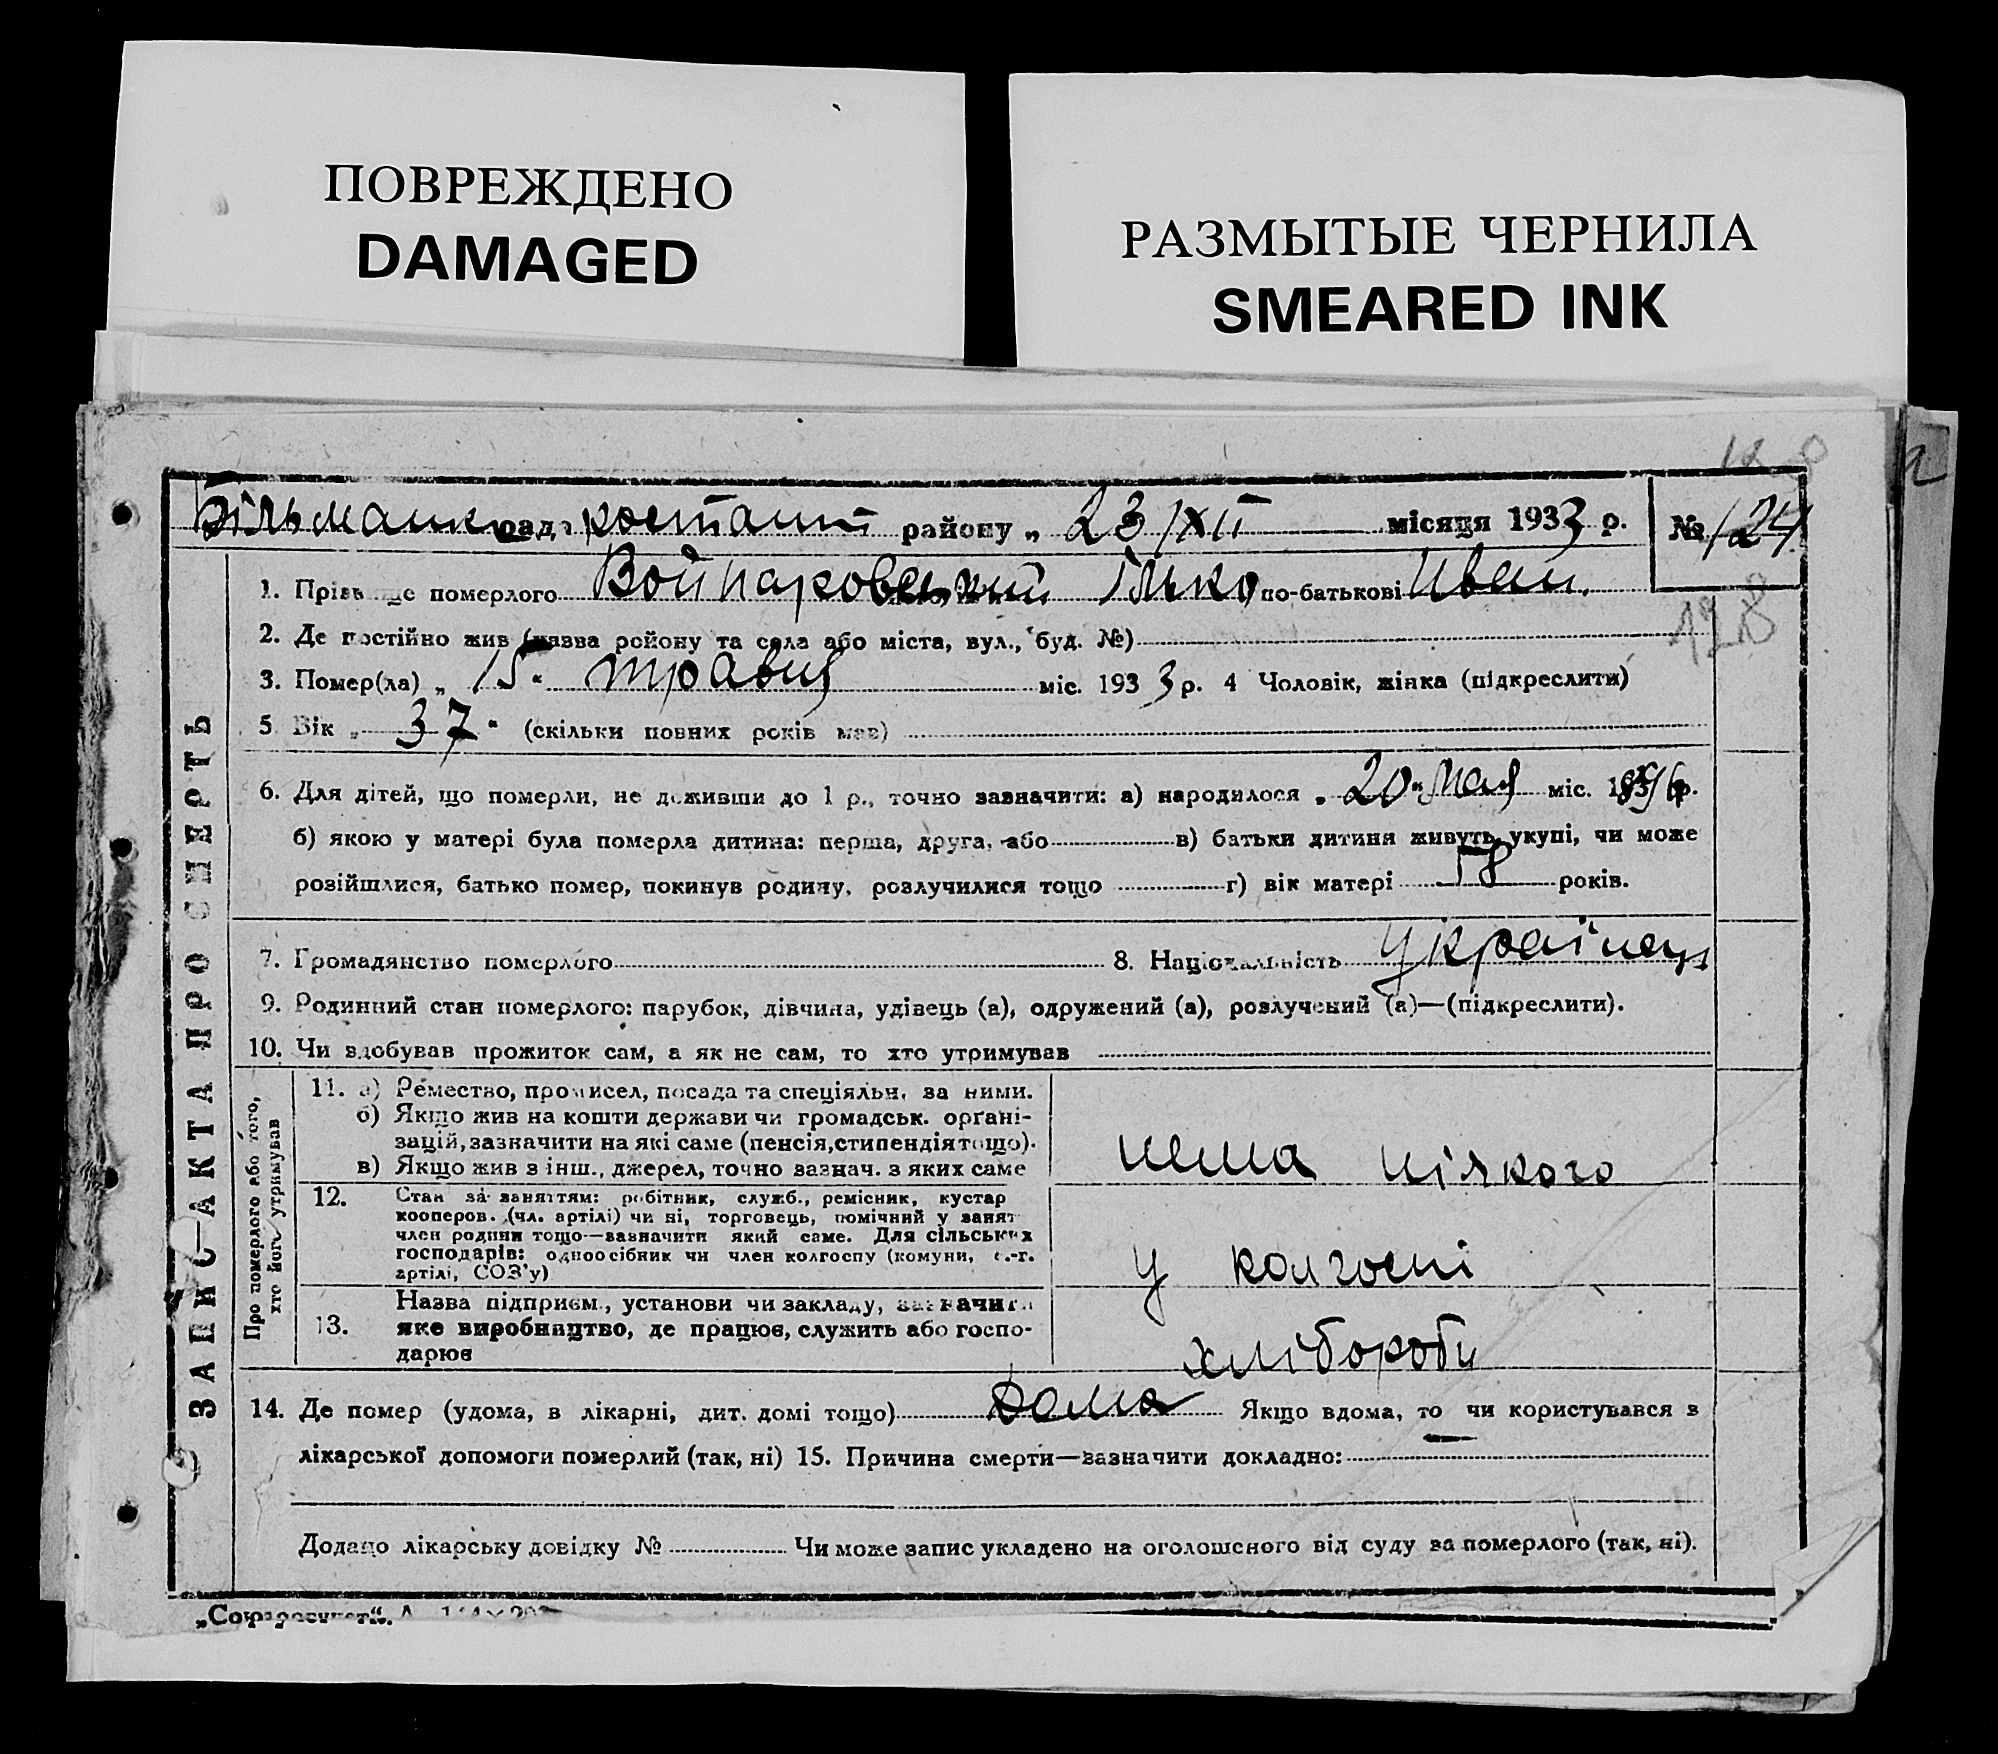 ПОВРЕЖДЕНО
DAMAGED
РАЗМЫТЫЕ ЧЕРНИЛА
SMEARED INK
рада району „ 23/XII місяця 1933 р. № 124
128
1. Прізвище померлого Войнаровський Ілько по-батькові Иван.
2. Де постійно жив (назва району та села або міста, вул., буд. №)
3. Помер(ла) „ 15 “ травня міс. 1933 р. 4 Чоловік, жінка (підкреслити)
5 Вік „ 37 “ (скільки повних років мав)
6. Для дітей, що померли, не доживши до 1 р., точно зазначити: а) народилося „ 20 “ мая міс. 1896 р.
б) якою у матері була померла дитина: перша, друга, або в) батьки дитини живуть укупі, чи може
розійшлися, батько помер, покинув родину, розлучилися тощо г) вік матері 58 років.
7. Громадянство померлого 8. Національність Українець
9. Родинний стан померлого: парубок, дівчина, удівець (а), одружений (а), розлучений (а)—(підкреслити).
10. Чи здобував прожиток сам, а як не сам, то хто утримував
ЗАПИС АКТА ПРО СМЕРТЬ
Про померлого або того,
хто його утримував
11. а) Ремество, промисел, посада та спеціяльн. за ними.
б) Якщо жив на кошти держави чи громадськ. орґані-
зацій, зазначити на які саме (пенсія, стипендія тощо).
в) Якщо жив з інш., джерел, точно зазнач. з яких саме
нема ніякого
12. Стан за заняттям: робітник, служб., ремісник, кустар
кооперов. (чл. артілі) чи ні, торговець, помічний у занят
член родини тощо—зазначити який саме. Для сільських
господарів: одноосібник чи член колгоспу (комуни, с.-г.
артілі, СОЗ'у)
у колгоспі
13. Назва підприєм., установи чи закладу, зазначити
яке виробництво, де працює, служить або госпо-
дарює
хлібороби
14. Де помер (удома, в лікарні, дит. домі тощо) Дома Якщо вдома, то чи користувався з
лікарської допомоги померлий (так, ні) 15. Причина смерти—зазначити докладно:
Додано лікарську довідку № Чи може запис укладено на оголошеного від суду за померлого (так, ні).